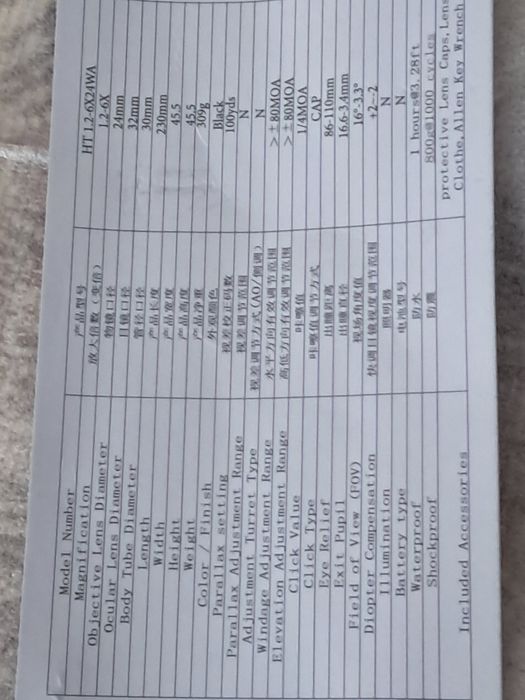 Model Number 产品型号 HT 1.2-6X24WA
Magnification 放大倍数（变倍） 1.2-6X
Objective Lens Diameter 物镜口径 24mm
Ocular Lens Diameter 目镜口径 32mm
Body Tube Diameter 管径口径 30mm
Length 产品长度 230mm
Width 产品宽度 45.5
Height 产品高度 45.5
Weight 产品净重 309g
Color / Finish 外观颜色 Black
Parallax setting 视差校正码数 100yds
Parallax Adjustment Range 视差调节范围 N
Adjustment Turret Type 视差调节方式(AO/侧调) N
Windage Adjustment Range 水平方向有效调节范围 >±80MOA
Elevation Adjustment Range 高低方向有效调节范围 >±80MOA
Click Value 咔嗒值 1/4MOA
Click Type 咔嗒值调节方式 CAP
Eye Relief 出瞳距离 86-110mm
Exit Pupil 出瞳直径 16.6-3.4mm
Field of View (FOV) 视场角度值 16°-3.3°
Diopter Compensation 快调目镜视度调节范围 +2--2
Illumination 照明器 N
Battery type 电池型号 N
Waterproof 防水 1 hours@3.28ft
Shockproof 防震 800g@1000 cycles
Included Accessories protective Lens Caps, Lens
Clothe, Allen Key Wrench